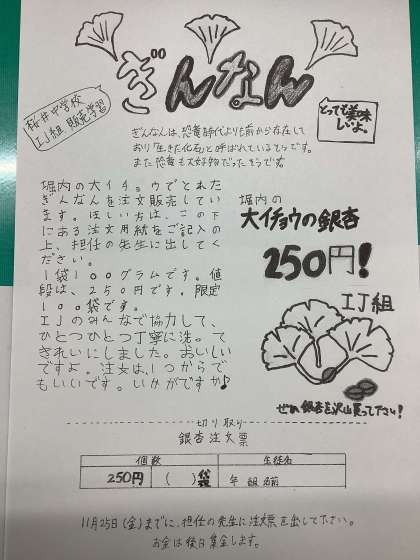 ぎんなん
桜井中学校
IJ組 販売学習
とっても美味
しいよ。
ぎんなんは、恐竜時代よりも前から存在して
おり「生きた化石」と呼ばれているそうです。
また恐竜も大好物だったそうです
堀内の大イチョウでとれた
ぎんなんを注文販売していま
す。ほしい方は、この下
にある注文用紙をご記入の
上、担任の先生に出してく
ださい。
1袋100グラムです。値
段は、250円です。限定
100袋です。
IJのみんなで協力して、
ひとつひとつ丁寧に洗って
きれいにしました。おいしい
ですよ。注文は、1つからで
もいいです。いかがですか♪
堀内の
大イチョウの銀杏
250円!
IJ組
ぜひ銀杏を沢山買って下さい!
切り取り
銀杏注文票
個数 生徒名
250円 ( )袋 年 組 名前
11月25日(金)までに、担任の先生に注文票を出して下さい。
お金は後日集金します。